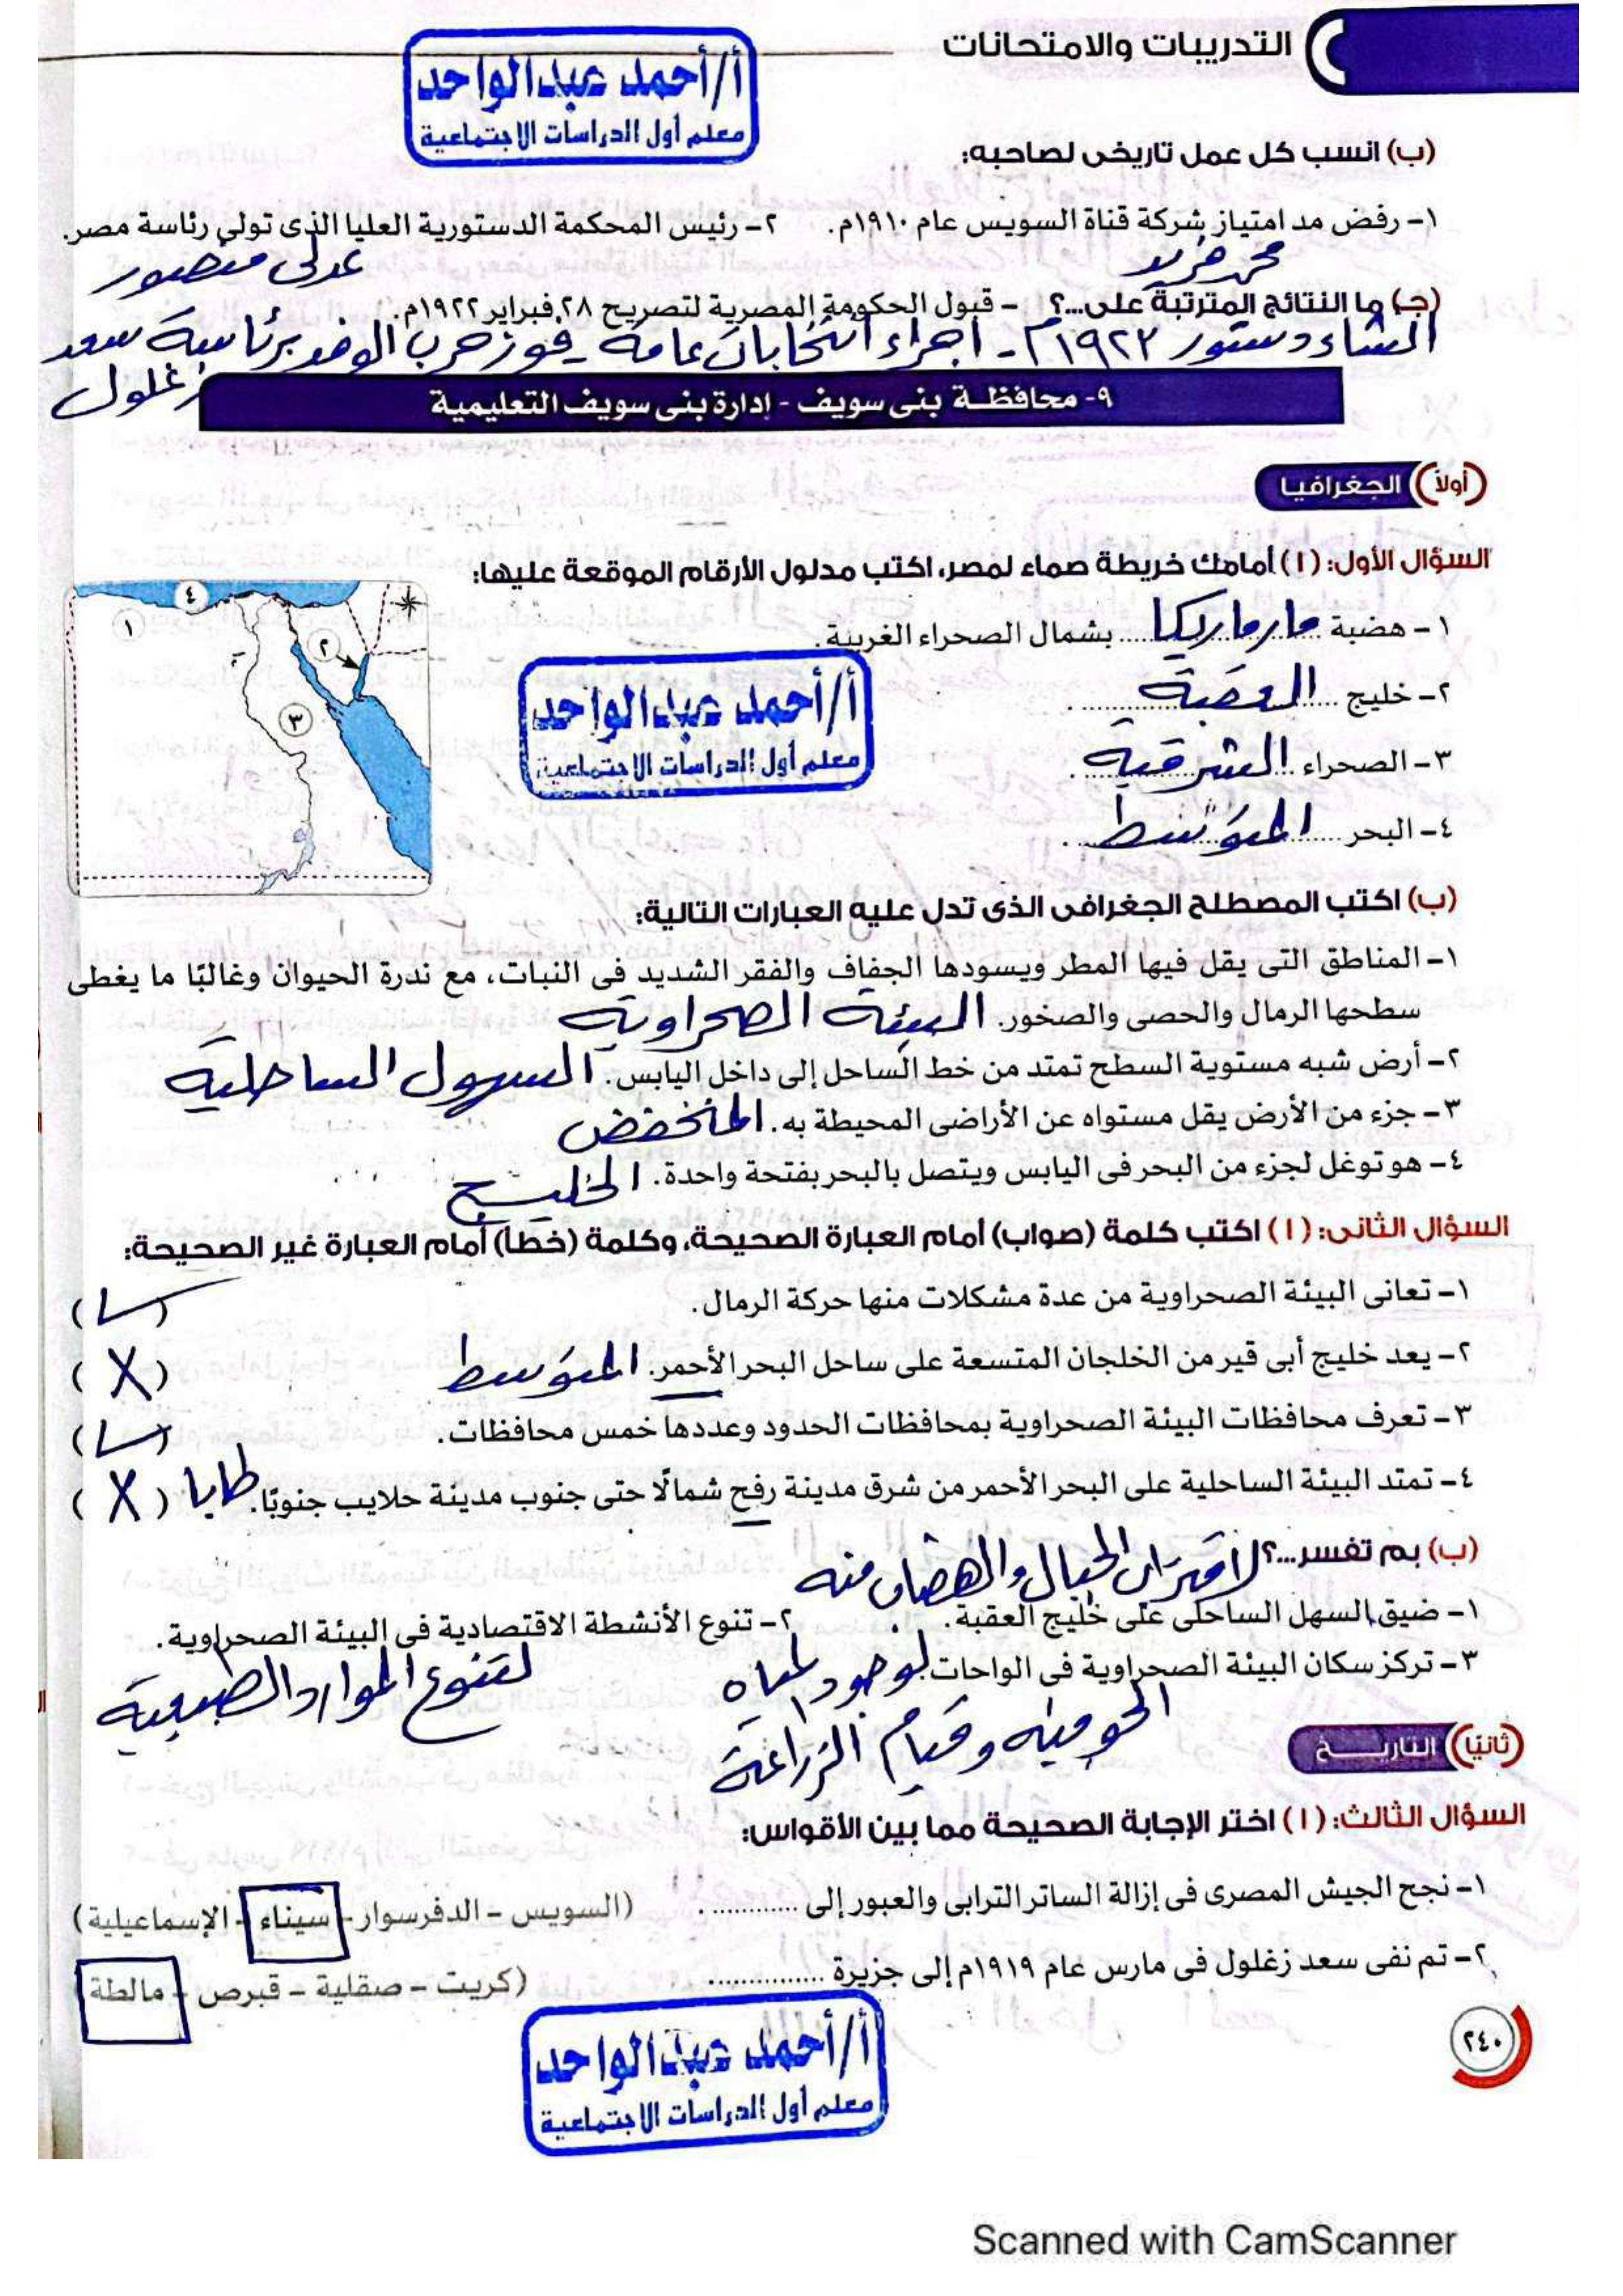 التدريبات والامتحانات
أ/أحمد عبدالواحد
معلم أول الدراسات الاجتماعية
(ب) انسب كل عمل تاريخى لصاحبه:
١- رفض مد امتياز شركة قناة السويس عام ١٩١٠م. ٢- رئيس المحكمة الدستورية العليا الذى تولى رئاسة مصر.
محمد فريد عدلى منصور
(جـ) ما النتائج المترتبة على...؟ - قبول الحكومة المصرية لتصريح ٢٨ فبراير ١٩٢٢م.
انشاء دستور ١٩٢٣م - اجراء انتخابات عامة - فوز حزب الوفد برئاسة سعد
زغلول
٩- محافظة بنى سويف - إدارة بنى سويف التعليمية
(أولاً) الجغرافيا
السؤال الأول: (١) أمامك خريطة صماء لمصر، اكتب مدلول الأرقام الموقعة عليها:
١- هضبة مارماريكا بشمال الصحراء الغربية.
٢- خليج العقبة.
٣- الصحراء الشرقية.
٤- البحر المتوسط.
٤
١
٢
٣
أ/أحمد عبدالواحد
معلم أول الدراسات الاجتماعية
(ب) اكتب المصطلح الجغرافى الذى تدل عليه العبارات التالية:
١- المناطق التى يقل فيها المطر ويسودها الجفاف والفقر الشديد فى النبات، مع ندرة الحيوان وغالبًا ما يغطى
سطحها الرمال والحصى والصخور. البيئة الصحراوية
٢- أرض شبه مستوية السطح تمتد من خط الساحل إلى داخل اليابس. السهول الساحلية
٣- جزء من الأرض يقل مستواه عن الأراضى المحيطة به. المنخفض
٤- هو توغل لجزء من البحر فى اليابس ويتصل بالبحر بفتحة واحدة. الخليج
السؤال الثانى: (١) اكتب كلمة (صواب) أمام العبارة الصحيحة، وكلمة (خطأ) أمام العبارة غير الصحيحة:
١- تعانى البيئة الصحراوية من عدة مشكلات منها حركة الرمال. (✓)
٢- يعد خليج أبى قير من الخلجان المتسعة على ساحل البحر الأحمر. المتوسط (X)
٣- تعرف محافظات البيئة الصحراوية بمحافظات الحدود وعددها خمس محافظات. (✓)
٤- تمتد البيئة الساحلية على البحر الأحمر من شرق مدينة رفح شمالًا حتى جنوب مدينة حلايب جنوبًا. طابا (X)
(ب) بم تفسر...؟ لاقتراب الجبال والهضاب منه
١- ضيق السهل الساحلى على خليج العقبة. ٢- تنوع الأنشطة الاقتصادية فى البيئة الصحراوية.
٣- تركز سكان البيئة الصحراوية فى الواحات. لوجود المياه لتنوع الموارد الطبيعية
الجوفية وقيام الزراعة
(ثانيًا) التاريخ
السؤال الثالث: (١) اختر الإجابة الصحيحة مما بين الأقواس:
١- نجح الجيش المصرى فى إزالة الساتر الترابى والعبور إلى ............ . (السويس - الدفرسوار - سيناء - الإسماعيلية)
٢- تم نفى سعد زغلول فى مارس عام ١٩١٩م إلى جزيرة ............... (كريت - صقلية - قبرص - مالطة)
أ/أحمد عبدالواحد
معلم أول الدراسات الاجتماعية
٢٤٠
Scanned with CamScanner